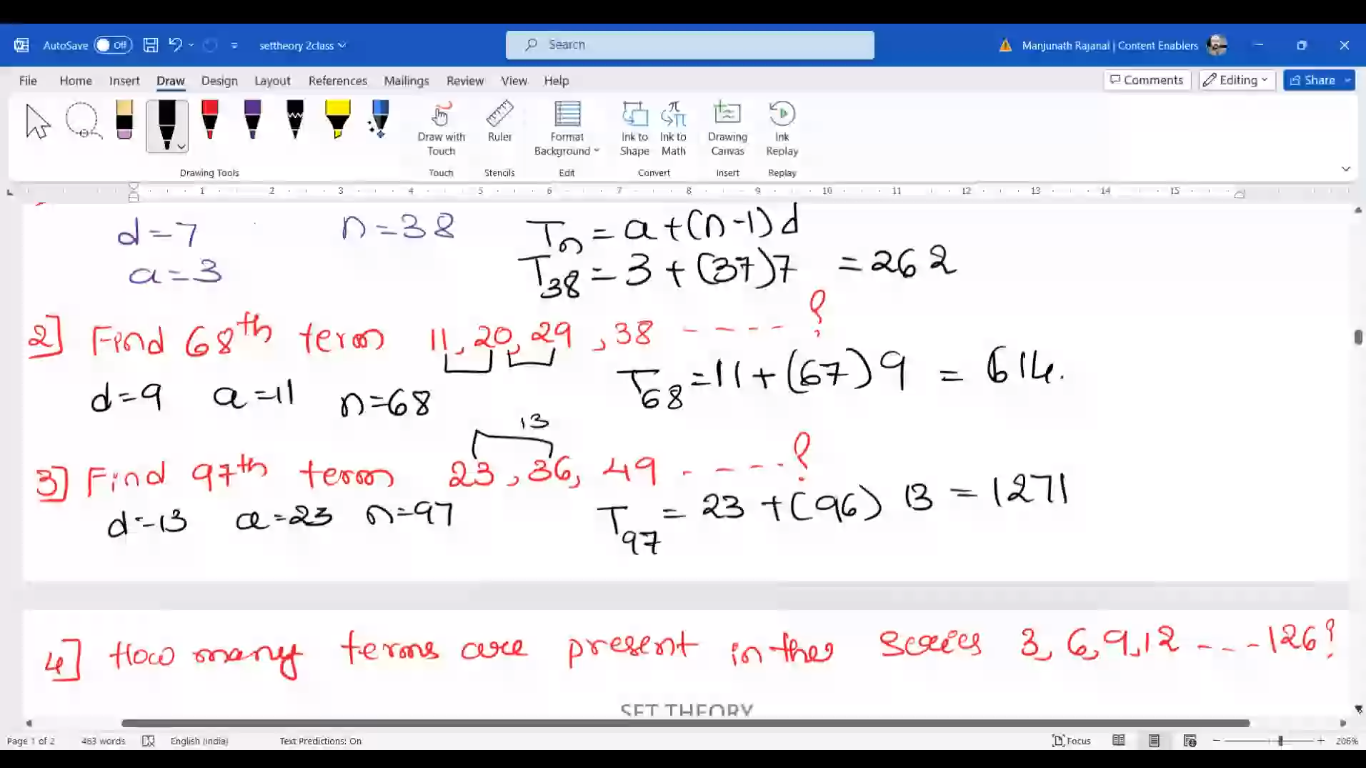 AutoSave Off settheory 2class Search Manjunath Rajanal | Content Enablers
File Home Insert Draw Design Layout References Mailings Review View Help Comments Editing Share
Draw with Touch Ruler Format Background Ink to Shape Ink to Math Drawing Canvas Ink Replay
Drawing Tools Touch Stencils Edit Convert Insert Replay
1 2 3 4 5 6 7 8 9 10 11 12 13 14 15
d=7 n=38 Tn = a+(n-1)d
a=3 T38 = 3+(37)7 =262
2] Find 68th term 11, 20, 29, 38 ----- ?
d=9 a=11 n=68 T68 =11+(67)9 = 614.
13
3] Find 97th term 23, 36, 49 ----- ?
d=13 a=23 n=97 T97 = 23 +(96) 13 = 1271
4] How many terms are present in the series 3, 6, 9, 12 --- 126?
SET THEORY
Page 1 of 2 463 words English (India) Text Predictions: On Focus 206%